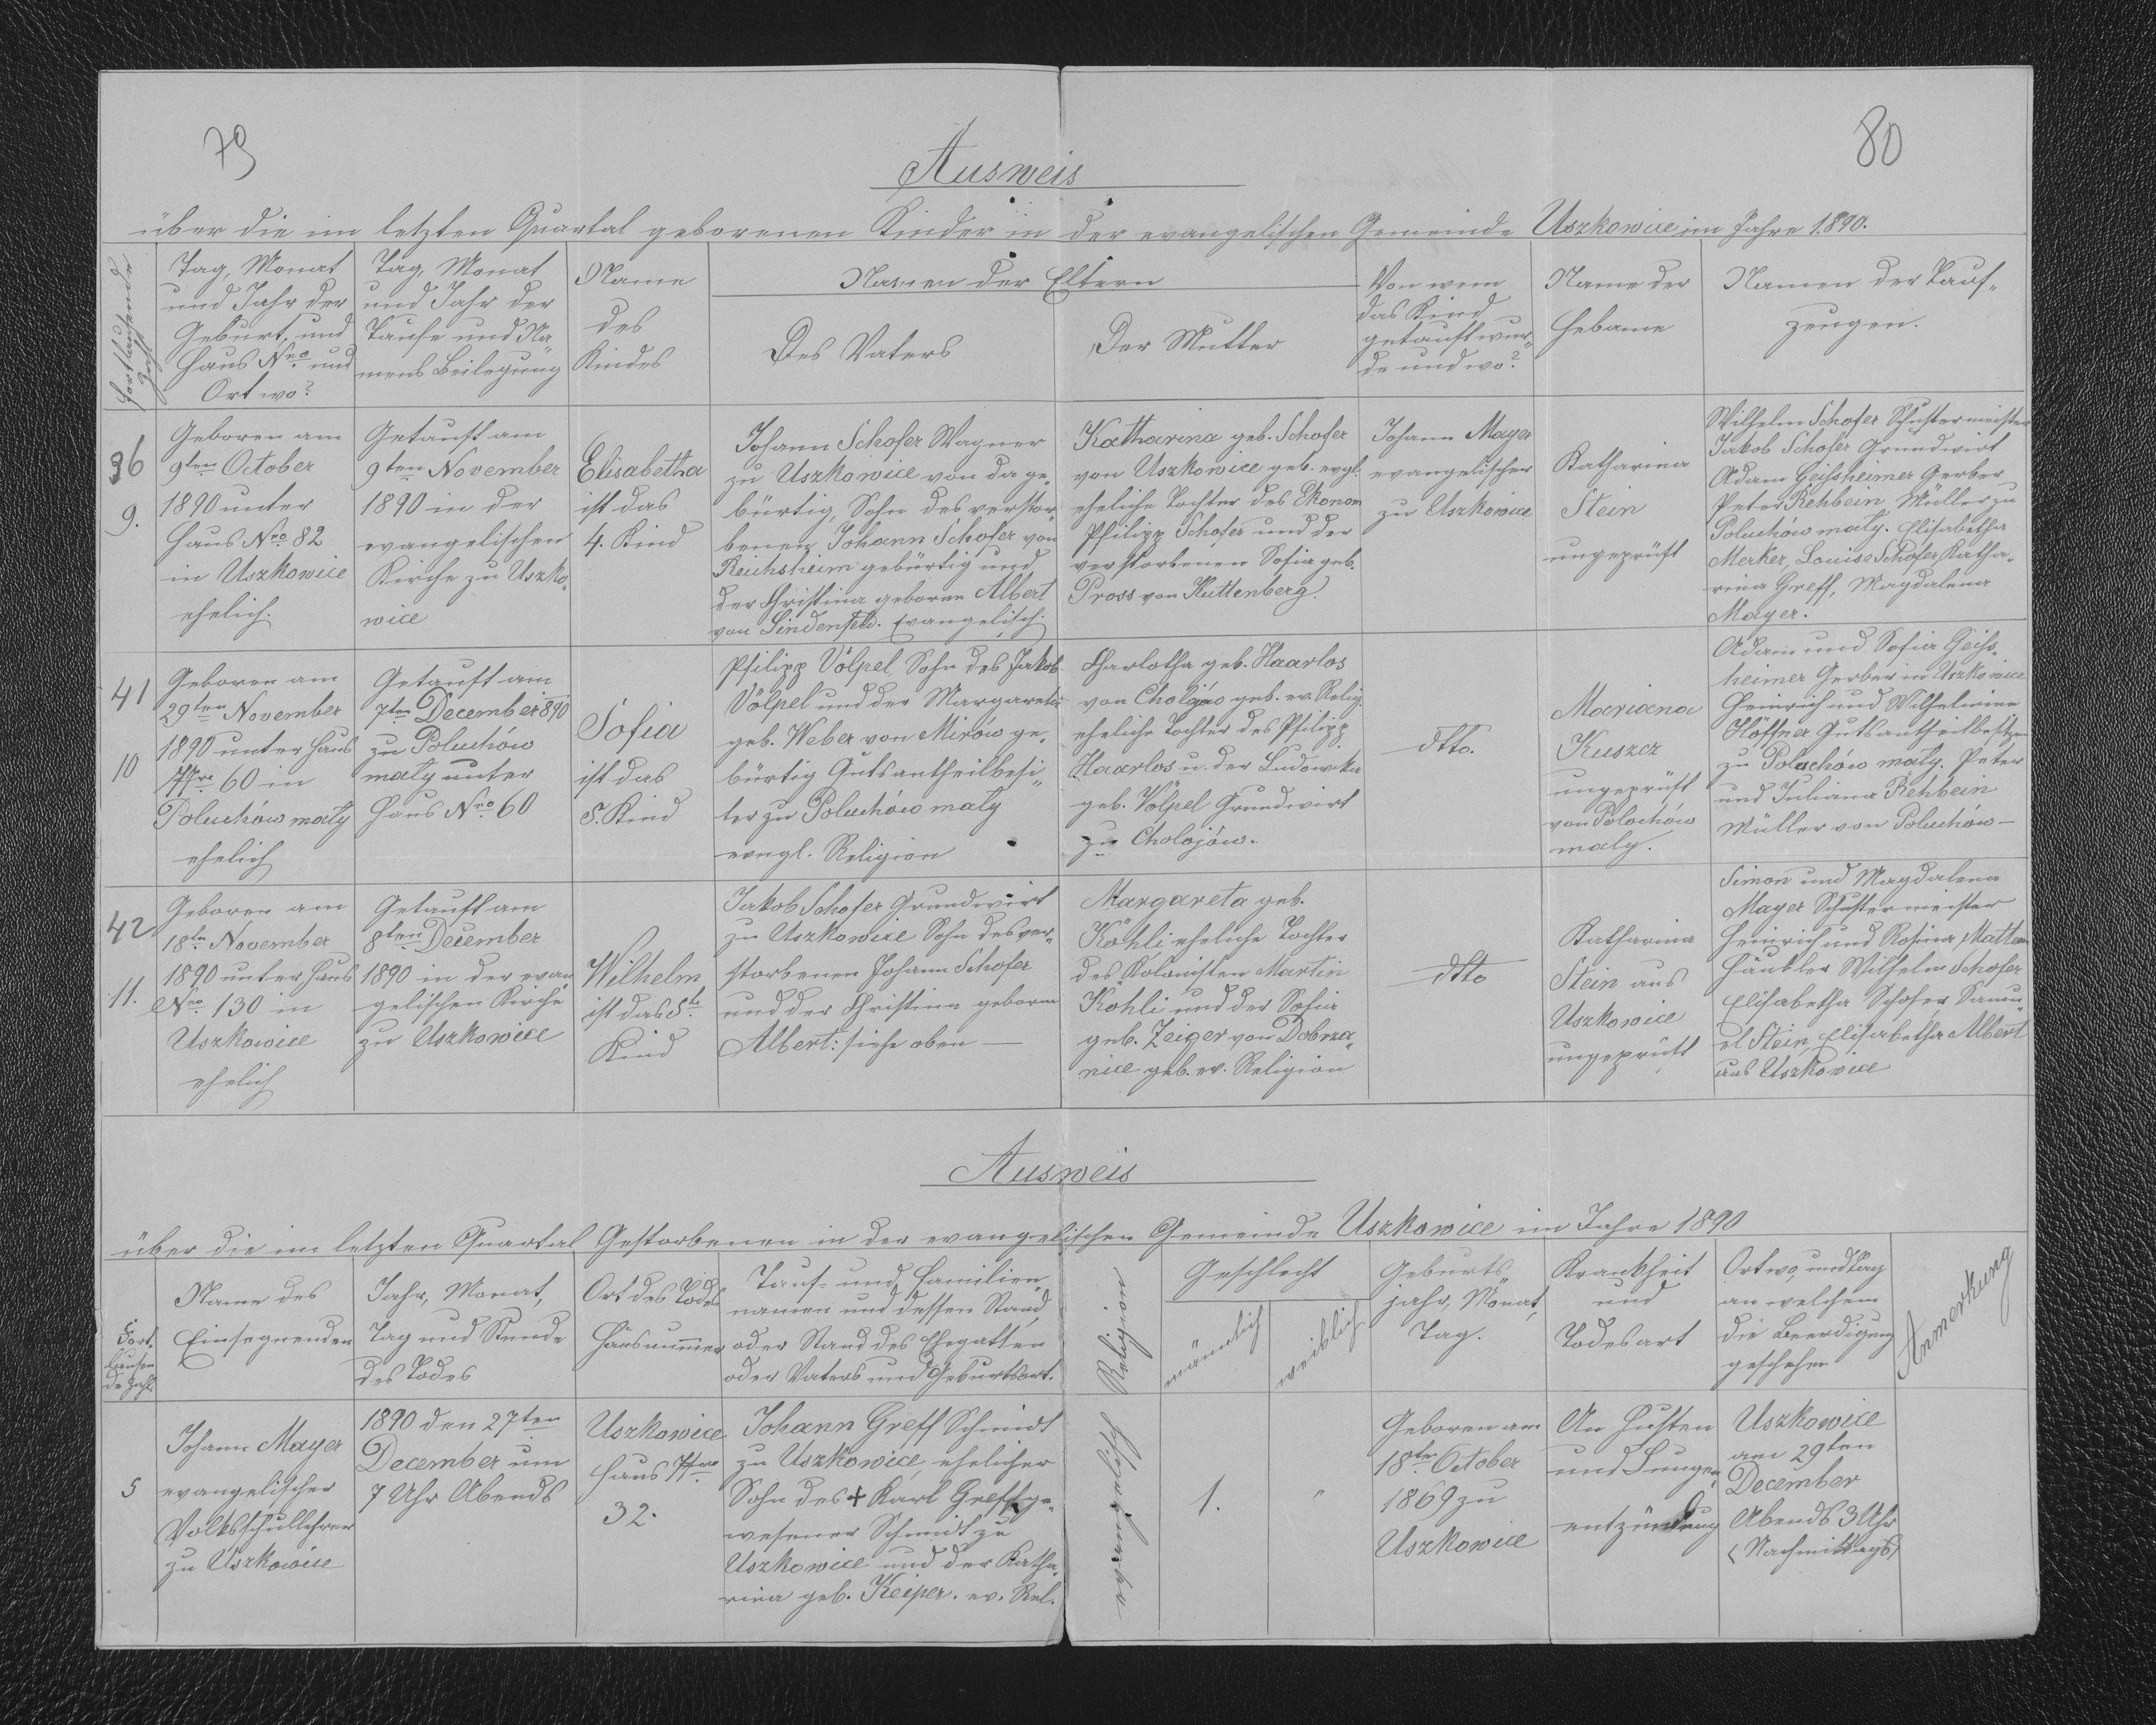 79
80
Ausweis
über die im letzten Quartal geborenen Kinder in der evangelischen Gemeinde Uszkowice im Jahre 1890.
Fortlaufende
Zahl
Tag, Monat
und Jahr der
Geburt, und
Haus Nro und
Ort wo?
Tag, Monat
und Jahr der
Taufe und Na-
mens Beilegung
Name
des
Kindes
Namen der Eltern
Des Vaters
Der Mutter
Von wem
das Kind
getauft wur-
de und wo?
Name der
Hebame
Namen der Tauf-
zeugen.
36
9.
Geboren am
9ten October
1890 unter
Haus Nro 82
in Uszkowice
ehelich.
Getauft am
9ten November
1890 in der
evangelischen
Kirche zu Uszko-
wice
Elisabetha
ist das
4. Kind
Johann Schofer Wagner
zu Uszkowice von da ge-
bürtig, Sohn des verstor-
benen Johann Schofer von
Reichsheim gebürtig und
der Christina geborne Albert
von Lindenfeld. Evangelisch.
Katharina geb. Schofer
von Uszkowice geb. evgl.
eheliche Tochter des Ekonom
Philipp Schofer und der
verstorbenen Sofia geb.
Pross von Kuttenberg.
Johann Mayer
evangelischer
zu Uszkowice
Katharina
Stein
ungeprüft
Wilhelm Schofer Schustermeister
Jakob Schofer Grundwirt
Adam Geissheimer Gerber
Peter Rehbein Müller zu
Poluchów maly. Elisabetha
Merker, Louise Schofer, Katha-
rina Greff, Magdalena
Mayer.
41
10
Geboren am
29ten November
1890 unter Haus
Nro 60 in
Poluchów maly
ehelich
Getauft am
7ten December 890
zu Poluchów
maly unter
Haus Nro 60
Sofia
ist das
5. Kind
Philipp Völpel, Sohn des Jakob
Völpel und der Margareta
geb. Weber von Mirów ge-
bürtig Gutsantheilbesi-
ter zu Poluchów maly
evngl. Religion
Charlotha geb. Haarlos
von geb. ev. Relig.
eheliche Tochter des Philipp
Haarlos u. der Ludowika
geb. Völpel Grundwirt
zu Cholojów.
dtto.
Mariana
Kuszcz
ungeprüft
von Polochów
maly.
Adam und Sofia Geiss-
heimer Gerber in Uszkowice
Heinrich und Wilhelmine
Höffner Gutsantheilbesitzer
zu Poluchów maly. Peter
und Juliana Rehbein
Müller von Poluchów-
42
11.
Geboren am
18te November
1890 unter Haus
Nro 130 in
Uszkowice
ehelich
Getauft am
8ten December
1890 in der evan
gelischen Kirche
zu Uszkowice
Wilhelm
ist das 5te
Kind
Jakob Schofer Grundwirt
zu Uszkowice Sohn des ver-
storbenen Johann Schofer
und der Christina geborne
Albert: siehe oben —
Margareta geb.
Köhli eheliche Tochter
des Kolonisten Martin
Köhli und der Sofia
geb. Zeiger von Dobrza-
nice geb. ev. Religion
dtto
Katharina
Stein aus
Uszkowice
ungeprüft
Simon und Magdalena
Mayer Schustermeister
Heinrich und Rosina
Häusler Wilhelm Schofer
Elisabetha Schofer, Samu-
el Stein, Elisabetha Albert
aus Uszkowice
Ausweis
über die im letzten Quartal Gestorbenen in der evangelischen Gemeinde Uszkowice im Jahre 1890
Fort-
laufen
de Zahl
Name des
Einsegnenden
Jahr, Monat,
Tag und Stunde
des Todes
Ort des Todes
Hausnummer
Tauf- und Familien-
namen und dessen Stand,
oder Stand des Ehegatten
oder Vaters und Geburtsort.
Religion.
Geschlecht
männlich
weiblich
Geburts-
jahr, Monat,
Tag.
Krankheit
und
Todesart
Ort wo, und Tag
an welchem
die Beerdigung
geschehen
Anmerkung
5
Johann Mayer
evangelischer
Volksschullehrer
zu Uszkowice
1890 den 27ten
December um
7 Uhr Abends
Uszkowice
Haus Nro
32.
Johann Greff Schmidt
zu Uszkowice, ehelicher
Sohn des + Karl Greff ge-
wesener Schmidt zu
Uszkowice und der Katha-
rina geb. Keiper. ev. Rel.
evangelisch
1.
"
Geboren am
18te October
1869 zu
Uszkowice
An Husten
und Lungen-
entzündung
Uszkowice
am 29ten
December
Abends 3 Uhr
(Nachmittags)